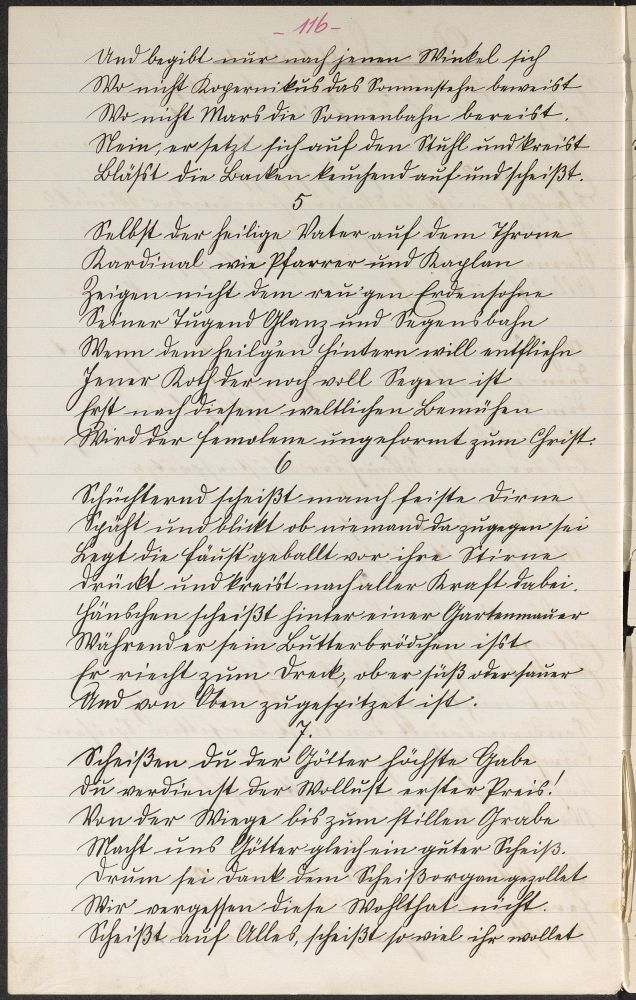 - 116 -
Und begibt nur nach jenen Winkel sich
Wo nicht Kopernikus das Sonnenstehn beweist
Wo nicht Mars die Sonnenbahn bereist.
Nein, er setzt sich auf den Stuhl und kreist
Bläst die Backen keuchend auf und scheißt.
5
Selbst der heilige Vater auf dem Throne
Kardinal wie Pfarrer und Kaplan
Zeigen nicht dem reu'gen Erdensohne
Seiner Tugend Glanz und Segensbahn
Wenn dem heilgen Hintern will entfliehn
Jener Koth der noch voll Segen ist
Erst nach diesem weltlichen Bemühen
Wird der ungeformt zum Christ.
6
Schüchternd scheißt manch feiste Dirne
Späht und blickt ob niemand da zugegen sei
Legt die Fäust' geballt vor ihre Stirne
Drückt und kreist nach aller Kraft dabei.
Hänschen scheißt hinter einer Gartenmauer
Während er sein Butterbrödchen isst
Er riecht zum Dreck, ob er süß oder sauer
Und von Oben zugespitzet ist.
7.
Scheißen du der Götter höchste Gabe
Du verdienst der Wollust erster Preis!
Von der Wiege bis zum stillen Grabe
Macht uns Götter gleich ein guter Scheiß.
Drum sei Dank dem Scheißorgan gezollet
Wir vergessen diese Wohlthat nicht.
Scheißt auf Alles, scheißt so viel ihr wollet